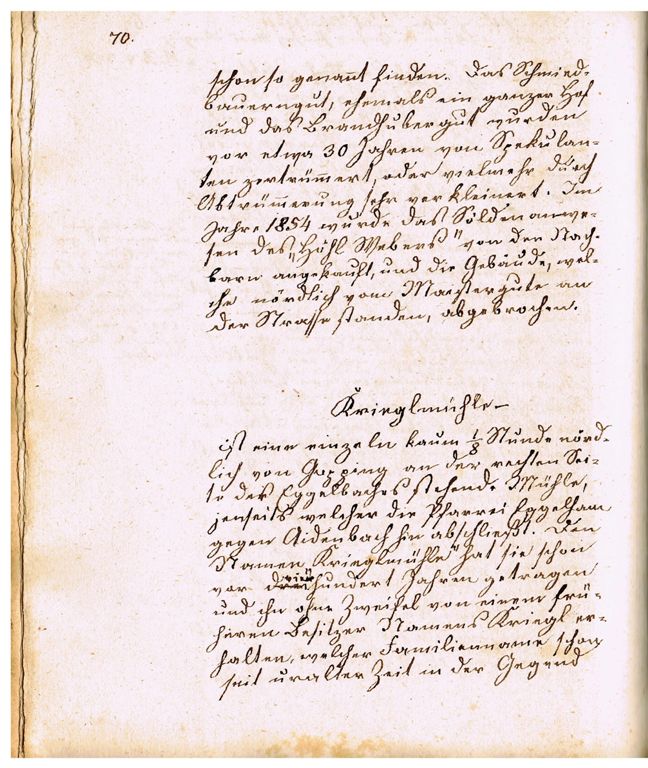 70.
schon so genannt finden. Das Schmied-
bauerngut, ehemals ein ganzer Hof
und das Brandhubergut wurden
vor etwa 30 Jahren von Spekulan-
ten zertrümmert, oder vielmehr durch
Abtrümmerung sehr verkleinert. Im
Jahre 1854 wurde das Söldenanwe-
sen des „Höhl Webers" von den Nach-
barn angekauft, und die Gebäude, wel-
che nördlich vom Maistergute an
der Strasse standen, abgebrochen.
Krieglmühle –
ist eine einzeln kaum 1/8 Stunde nörd-
lich von Gopping an der rechten Sei-
te des Eggelbaches stehende Mühle,
jenseits welcher die Pfarrei Eggelham
gegen Aidenbach hin abschließt. Den
Namen „Krieglmühle" hat sie schon
vor vierhundert Jahren getragen
und ihn ohne Zweifel von einem frü-
heren Besitzer Namens Kriegl er-
halten, welcher Familienname schon
seit uralter Zeit in der Gegend